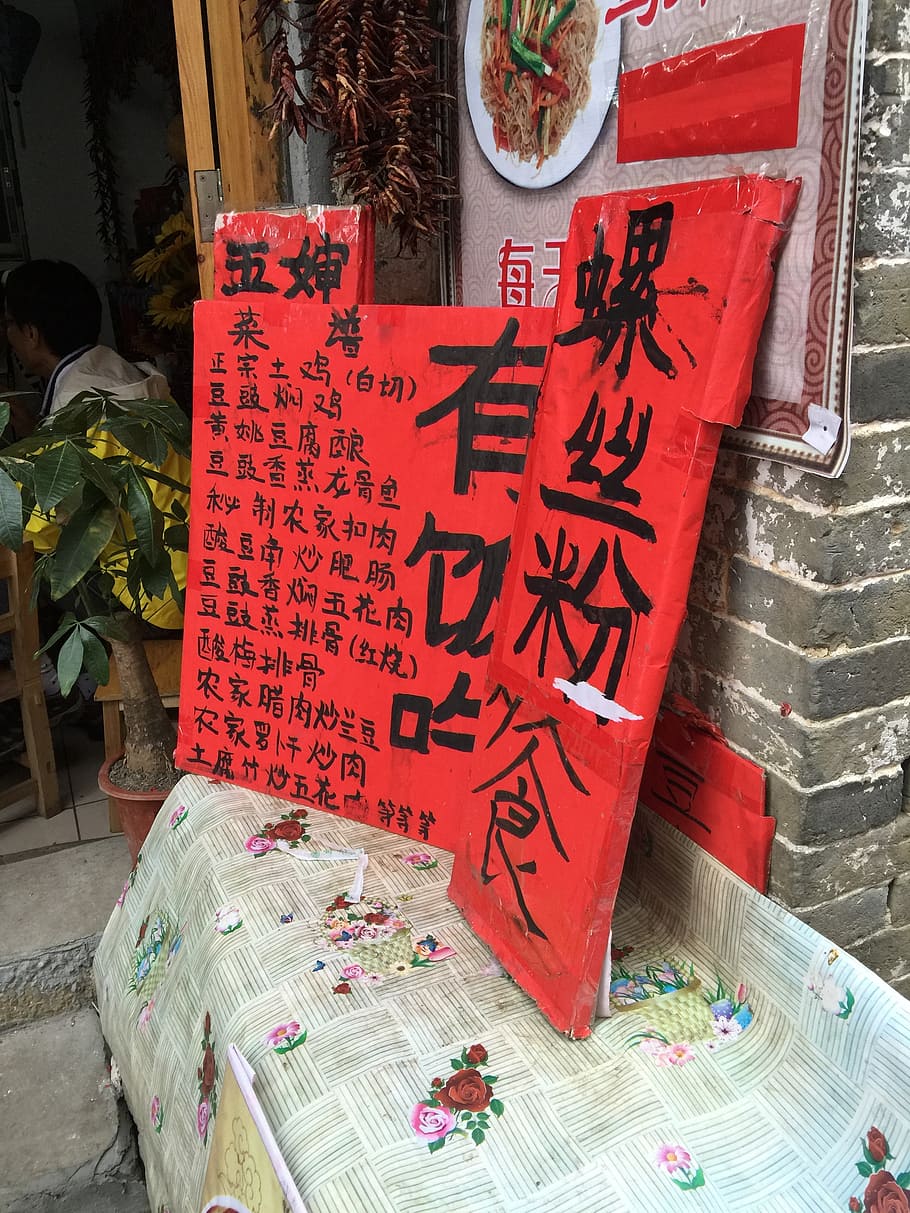 五婶
菜 谱
正宗土鸡(白切)
豆豉焖鸡
黄姚豆腐酿
豆豉香蒸龙骨鱼
秘制农家扣肉
酸豆角炒肥肠
豆豉香焖五花肉
豆豉蒸排骨(红烧)
酸梅排骨
农家腊肉炒兰豆
农家罗卜干炒肉
土腐竹炒五花肉等等等
有
饮
吃
螺丝粉
食
每天
豆